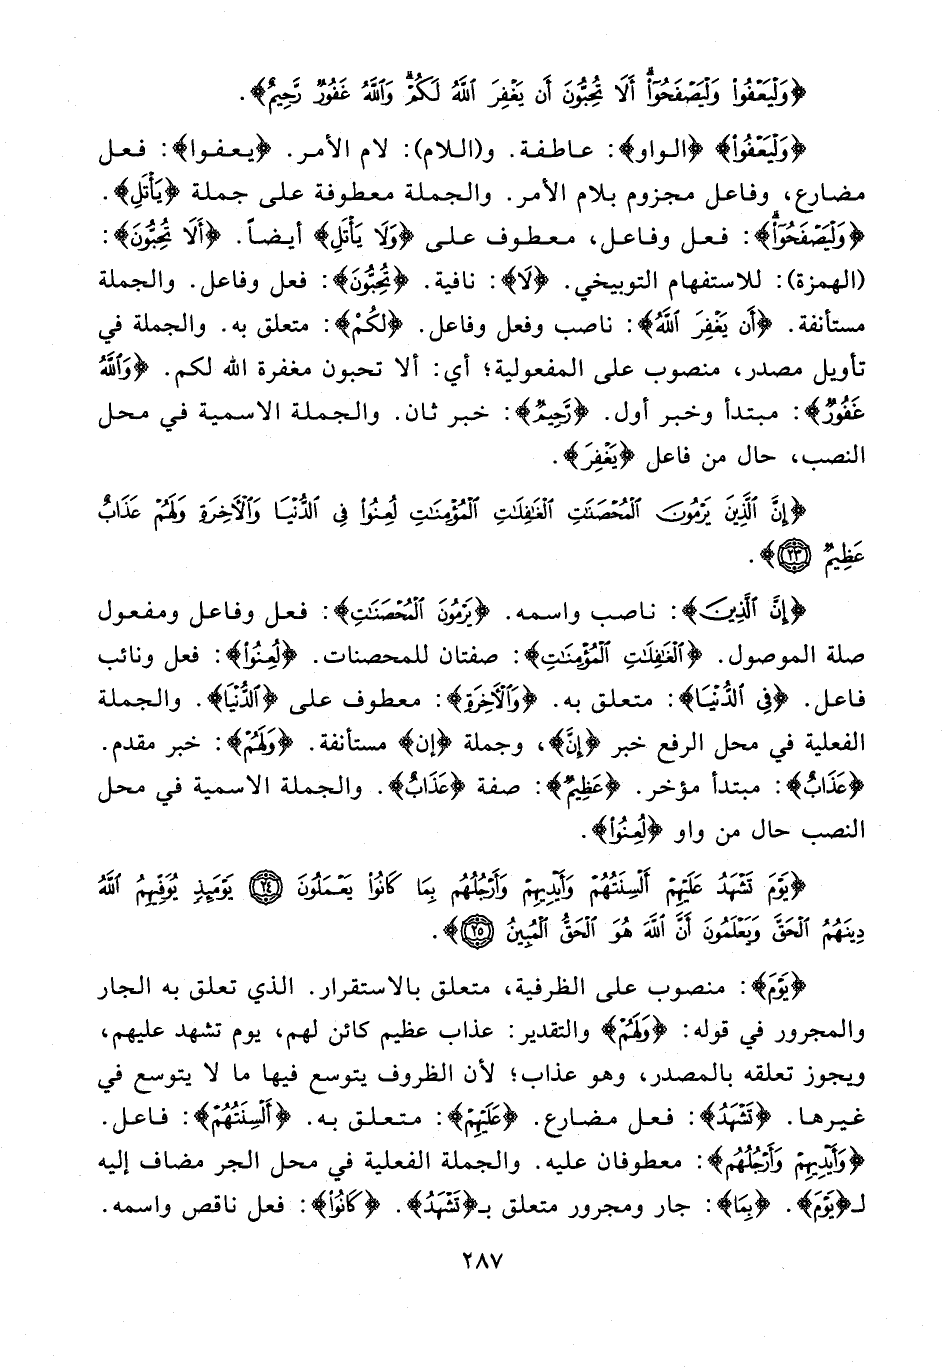 ﴿وَلْيَعْفُوا۟ وَلْيَصْفَحُوٓا۟ۗ أَلَا تُحِبُّونَ أَن يَغْفِرَ ٱللَّهُ لَكُمْۗ وَٱللَّهُ غَفُورٌ رَّحِيمٌ﴾.
﴿وَلْيَعْفُوا۟﴾ ﴿الواو﴾: عاطفة. و(اللام): لام الأمر. ﴿يعفوا﴾: فعل
مضارع، وفاعل مجزوم بلام الأمر. والجملة معطوفة على جملة ﴿يَأْتَلِ﴾.
﴿وَلْيَصْفَحُوٓا۟ۗ﴾: فعل وفاعل، معطوف على ﴿وَلَا يَأْتَلِ﴾ أيضاً. ﴿أَلَا تُحِبُّونَ﴾:
(الهمزة): للاستفهام التوبيخي. ﴿لَا﴾: نافية. ﴿تُحِبُّونَ﴾: فعل وفاعل. والجملة
مستأنفة. ﴿أَن يَغْفِرَ ٱللَّهُ﴾: ناصب وفعل وفاعل. ﴿لَكُمْ﴾: متعلق به. والجملة في
تأويل مصدر، منصوب على المفعولية؛ أي: ألا تحبون مغفرة الله لكم. ﴿وَٱللَّهُ
غَفُورٌ﴾: مبتدأ وخبر أول. ﴿رَّحِيمٌ﴾: خبر ثان. والجملة الاسمية في محل
النصب، حال من فاعل ﴿يَغْفِرَ﴾.
﴿إِنَّ ٱلَّذِينَ يَرْمُونَ ٱلْمُحْصَنَٰتِ ٱلْغَٰفِلَٰتِ ٱلْمُؤْمِنَٰتِ لُعِنُوا۟ فِى ٱلدُّنْيَا وَٱلْأَخِرَةِ وَلَهُمْ عَذَابٌ
عَظِيمٌ ٢٣﴾.
﴿إِنَّ ٱلَّذِينَ﴾: ناصب واسمه. ﴿يَرْمُونَ ٱلْمُحْصَنَٰتِ﴾: فعل وفاعل ومفعول
صلة الموصول. ﴿ٱلْغَٰفِلَٰتِ ٱلْمُؤْمِنَٰتِ﴾: صفتان للمحصنات. ﴿لُعِنُوا۟﴾: فعل ونائب
فاعل. ﴿فِى ٱلدُّنْيَا﴾: متعلق به. ﴿وَٱلْأَخِرَةِ﴾: معطوف على ﴿ٱلدُّنْيَا﴾. والجملة
الفعلية في محل الرفع خبر ﴿إِنَّ﴾، وجملة ﴿إن﴾ مستأنفة. ﴿وَلَهُمْ﴾: خبر مقدم.
﴿عَذَابٌ﴾: مبتدأ مؤخر. ﴿عَظِيمٌ﴾: صفة ﴿عَذَابٌ﴾. والجملة الاسمية في محل
النصب حال من واو ﴿لُعِنُوا۟﴾.
﴿يَوْمَ تَشْهَدُ عَلَيْهِمْ أَلْسِنَتُهُمْ وَأَيْدِيهِمْ وَأَرْجُلُهُم بِمَا كَانُوا۟ يَعْمَلُونَ ٢٤ يَوْمَئِذٍ يُوَفِّيهِمُ ٱللَّهُ
دِينَهُمُ ٱلْحَقَّ وَيَعْلَمُونَ أَنَّ ٱللَّهَ هُوَ ٱلْحَقُّ ٱلْمُبِينُ ٢٥﴾.
﴿يَوْمَ﴾: منصوب على الظرفية، متعلق بالاستقرار. الذي تعلق به الجار
والمجرور في قوله: ﴿وَلَهُمْ﴾ والتقدير: عذاب عظيم كائن لهم، يوم تشهد عليهم،
ويجوز تعلقه بالمصدر، وهو عذاب؛ لأن الظروف يتوسع فيها ما لا يتوسع في
غيرها. ﴿تَشْهَدُ﴾: فعل مضارع. ﴿عَلَيْهِمْ﴾: متعلق به. ﴿أَلْسِنَتُهُمْ﴾: فاعل.
﴿وَأَيْدِيهِمْ وَأَرْجُلُهُم﴾: معطوفان عليه. والجملة الفعلية في محل الجر مضاف إليه
لـ﴿يَوْمَ﴾. ﴿بِمَا﴾: جار ومجرور متعلق بـ﴿تَشْهَدُ﴾. ﴿كَانُوا۟﴾: فعل ناقص واسمه.
٢٨٧